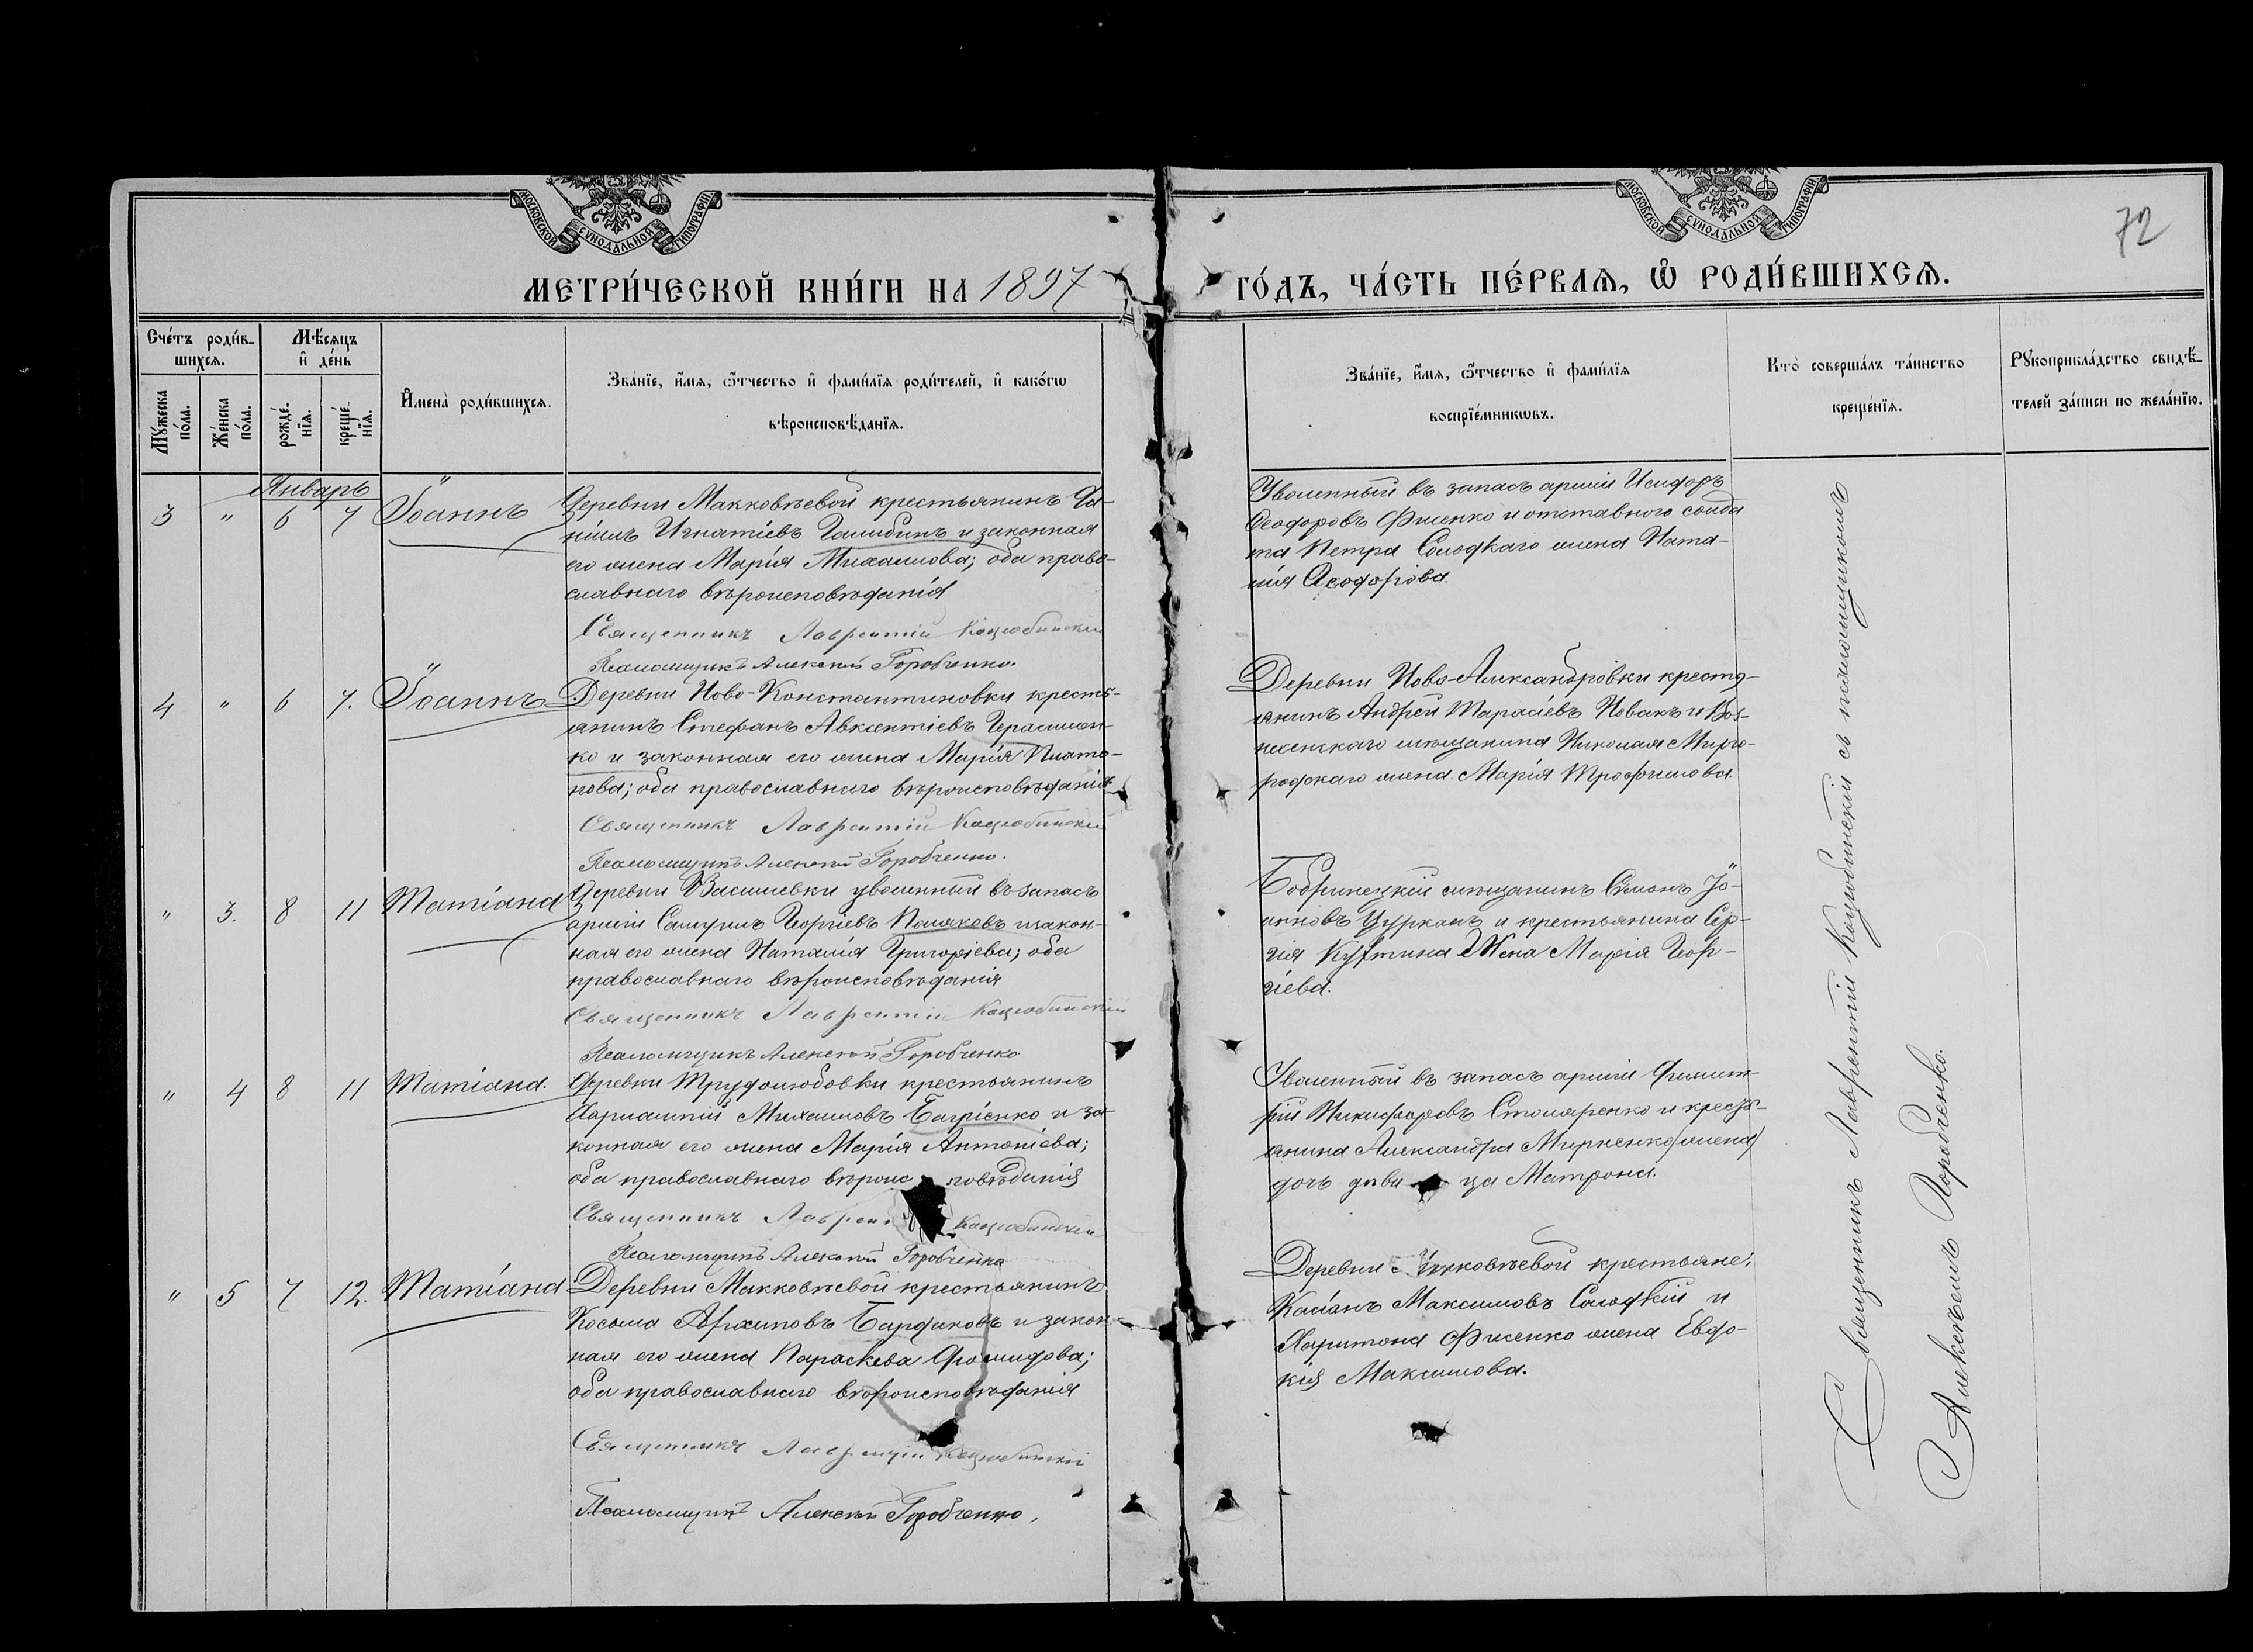 МОСКОВСКОЙ СѴНОДАЛЬНОЙ ТИПОГРАФІИ.
МОСКОВСКОЙ СѴНОДАЛЬНОЙ ТИПОГРАФІИ.
72
МЕТРИ́ЧЕСКОЙ КНИ́ГИ НА 1897 ГО́ДЪ, ЧА́СТЬ ПЕ́РВАѦ, Ѡ҆ РОДИ́ВШИХСѦ.
Сче́тъ роди́в-
шихсѧ.
Мѣ́сѧцъ
и҆ де́нь
Мꙋ́жеска
по́ла.
Же́нска
по́ла.
рожде́-
нїѧ.
креще́-
нїѧ.
И҆мена̀ роди́вшихсѧ.
Зва́нїе, и҆́мѧ, ѻ҆́тчество и҆ фами́лїѧ роди́телей, и҆ како́гѡ
вѣроисповѣ́данїѧ.
Зва́нїе, и҆́мѧ, ѻ҆́тчество и҆ фами́лїѧ
воспрїе́мникѡвъ.
Кто̀ соверша́лъ та́инство
креще́нїѧ.
Рꙋкоприкла́дство свидѣ́-
телей за́писи по жела́нїю.
Январь
3 " 6 7 Іоаннъ
Деревни Макковѣевой крестьянинъ Да-
ніилъ Игнатіевъ и законная
его жена Марія Михаилова; оба право-
славнаго вѣроисповѣданія
Священникъ Лаврентій Коцюбинскій
Псаломщикъ Алексѣй Горобченко.
Уволенный въ запасъ арміи Исидоръ
Ѳеодоровъ Фисенко и отставного солда
та Петра Солодкаго жена Ната-
лія Ѳеодорова.
4 " 6 7. Іоаннъ
Деревни Ново-Константиновки кресть-
янинъ Стефанъ Авксентіевъ Герасимен-
ко и законная его жена Марія Плато-
нова; оба православнаго вѣроисповѣданія
Священникъ Лаврентій Коцюбинскій
Псаломщикъ Алексѣй Горобченко.
Деревни Ново-Александровки крестя-
янинъ Андрей Тарасіевъ Новакъ и Воз-
несенскаго мѣщанина Николая Мирго-
родскаго жена Марія Трофимова.
" 3. 8 11 Татіана
Деревни Василіевки уволенный въ запасъ
арміи Самуилъ Георгіевъ Поляковъ и закон-
ная его жена Наталія Григоріева; оба
православнаго вѣроисповѣданія
Священникъ Лаврентій Коцюбинскій
Псаломщикъ Алексѣй Горобченко
Бобринецкій мѣщанинъ Симонъ Іо-
анновъ Цурканъ и крестьянина Сер-
гія жена Марія Геор-
гіева.
" 4 8 11 Татіана.
Деревни Трудолюбовки крестьянинъ
Харлампій Михаиловъ Багріенко и за-
конная его жена Марія Антоніева;
оба православнаго вѣроисповѣданія
Священникъ Лаврен Коцюбинскій
Псаломщикъ Алексѣй Горобченко
Уволенный въ запасъ арміи Димит-
рій Никифоровъ Столяренко и кресть-
янина Александра (жена)
дочь дѣвица Матрона.
" 5 7 12. Татіана
Деревни Макковѣевой крестьянинъ
Косьма Архиповъ Бардаковъ и закон-
ная его жена Параскева Діомидова;
оба православнаго вѣроисповѣданія
Священникъ Лаврентій Коцюбинскій
Псаломщикъ Алексѣй Горобченко.
Деревни Макковѣевой крестьяне:
Касіанъ Максимовъ Солодкій и
Харитона Фисенко жена Евдо-
кія Максимова.
Священникъ Лаврентій Коцюбинскій съ псаломщикомъ
Алексѣемъ Горобченко.